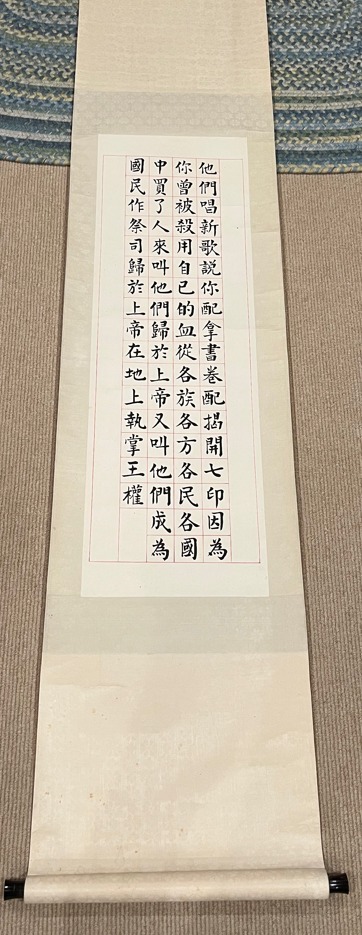 他們唱新歌說你配拿書卷配揭開七印因為
你曾被殺用自己的血從各族各方各民各國
中買了人來叫他們歸於上帝又叫他們成為
國民作祭司歸於上帝在地上執掌王權